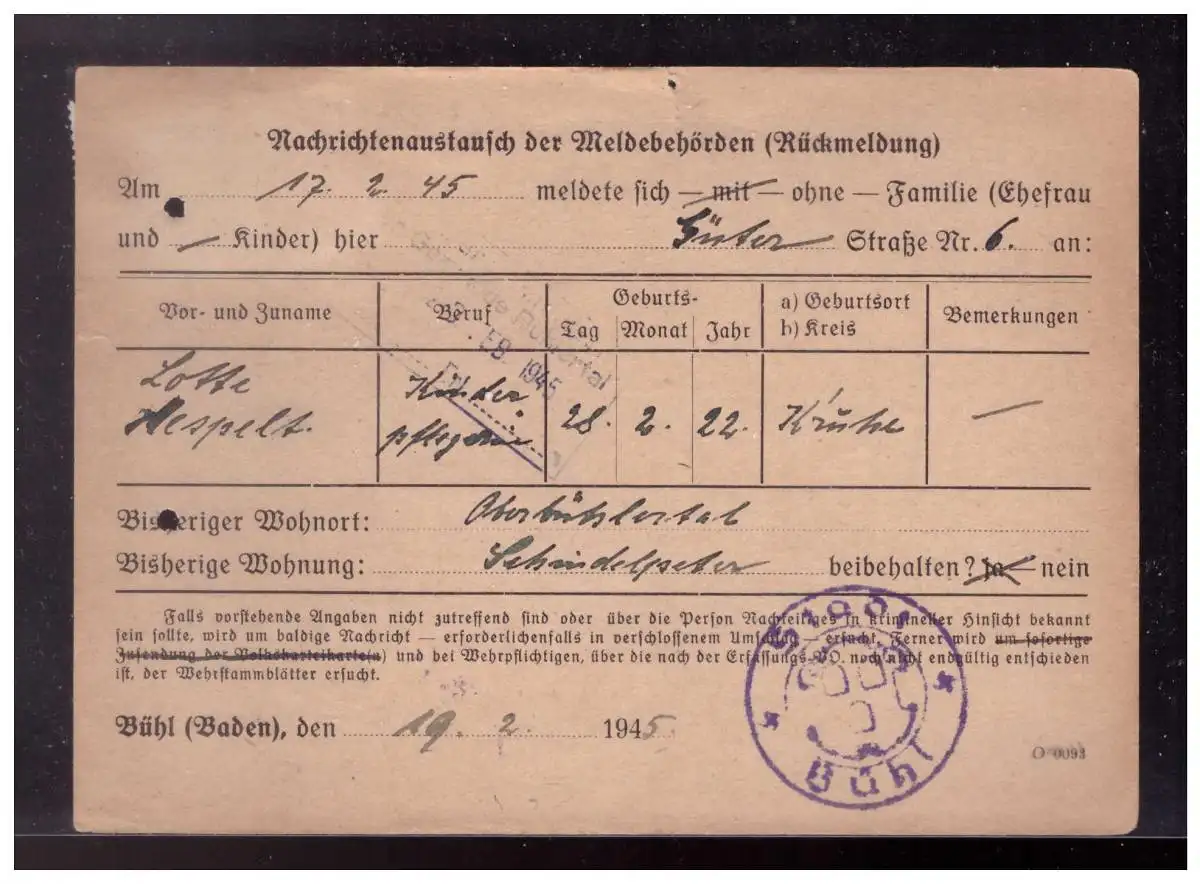 Nachrichtenaustausch der Meldebehörden (Rückmeldung)
Am 17. 2. 45 meldete sich — mit — ohne — Familie (Ehefrau
und — Kinder) hier Güter Straße Nr. 6. an:
Vor- und Zuname
Beruf
Geburts-
Tag Monat Jahr
a) Geburtsort
b) Kreis
Bemerkungen
Lotte
Hespelt.
Kinder
pflegerin
28. 2. 22.
K'ruhe
—
Bisheriger Wohnort: Oberbühlertal
Bisherige Wohnung: Schindelpeter beibehalten? ja — nein
Falls vorstehende Angaben nicht zutreffend sind oder über die Person Nachteiliges in krimineller Hinsicht bekannt
sein sollte, wird um baldige Nachricht — erforderlichenfalls in verschlossenem Umschlag — ersucht. Ferner wird um sofortige
Zusendung der Volkskarteikarte(n) und bei Wehrpflichtigen, über die nach der Erfassungs-VO. noch nicht endgültig entschieden
ist, der Wehrstammblätter ersucht.
Bühl (Baden), den 19. 2. 1945
O 0093
Stadt
Bühl
FEB 1945